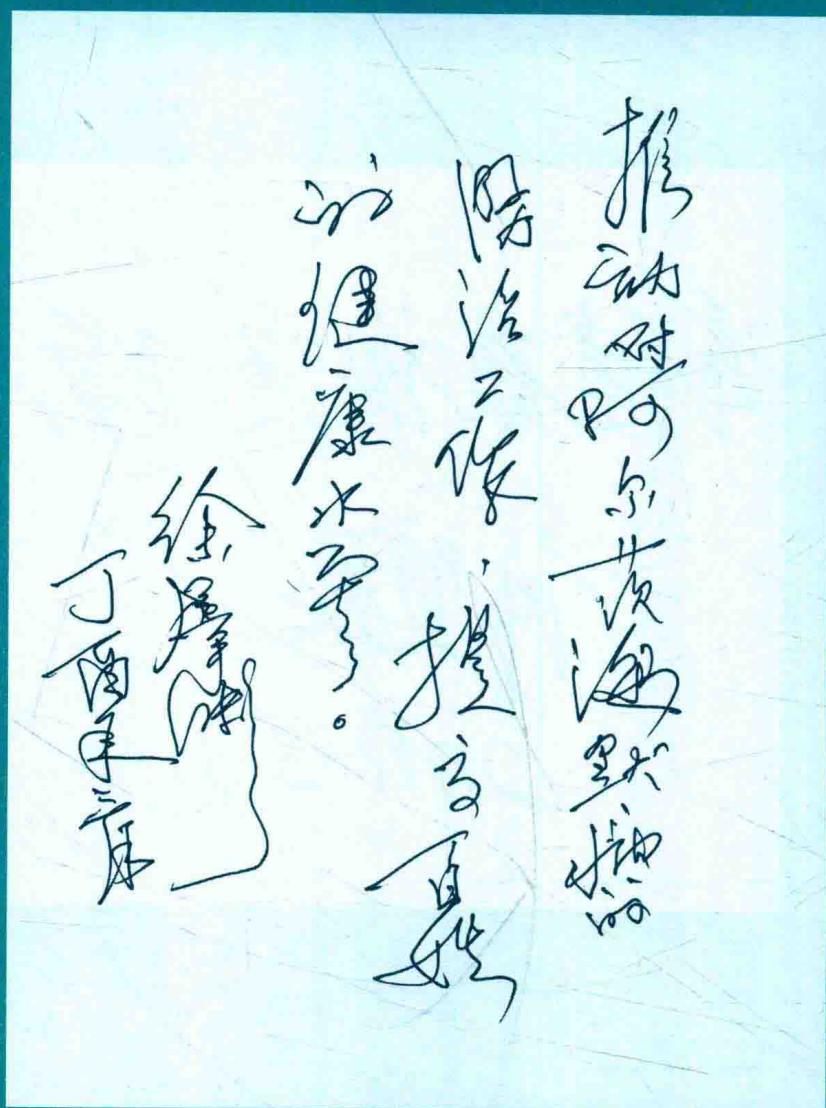 推动对阿尔茨海默病的
防治工作，提高百姓
的健康水平。
徐
丁酉年三月